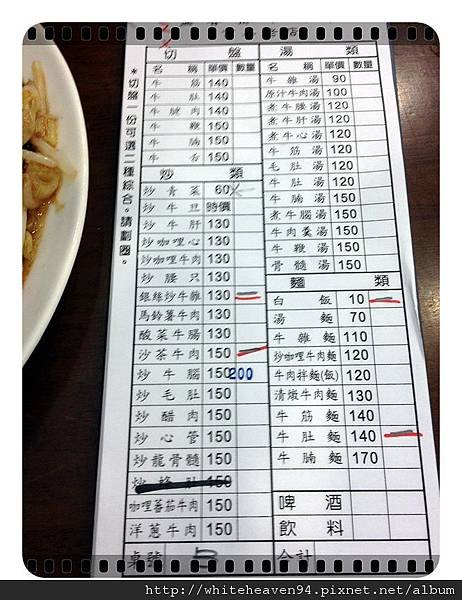 *切盤一份可選二種綜合。請劃圈。
切 盤
名 稱 單價 數量
牛 筋 140
牛 肚 140
牛 腱 肉 140
牛 鞭 150
牛 腩 150
牛 舌 150
炒 類
炒 青 菜 60
炒 牛 旦 時價
炒 牛 肝 130
炒咖哩心 130
炒咖哩牛肉 130
炒 腰 只 130
銀絲炒牛雜 130
馬鈴薯牛肉 130
酸菜牛腸 130
沙茶牛肉 150
炒 牛 腦 150 200
炒 毛 肚 150
炒 醋 肉 150
炒 心 管 150
炒龍骨髓 150
150
咖哩蕃茄牛肉 150
洋蔥牛肉 150
桌號
湯 類
名 稱 單價 數量
牛 雜 湯 90
原汁牛肉湯 100
煮牛腰湯 120
煮牛肝湯 120
煮牛心湯 120
牛 筋 湯 120
毛 肚 湯 120
牛 肚 湯 120
牛 腩 湯 150
煮牛腦湯 150
牛肉羹湯 150
牛 鞭 湯 150
骨 髓 湯 150
麵 類
白 飯 10
湯 麵 70
牛 雜 麵 110
炒咖哩牛肉麵 120
牛肉拌麵(飯) 120
清燉牛肉麵 130
牛 筋 麵 140
牛 肚 麵 140
牛 腩 麵 170
啤 酒
飲 料
合計
http://whiteheaven94.pixnet.net/album